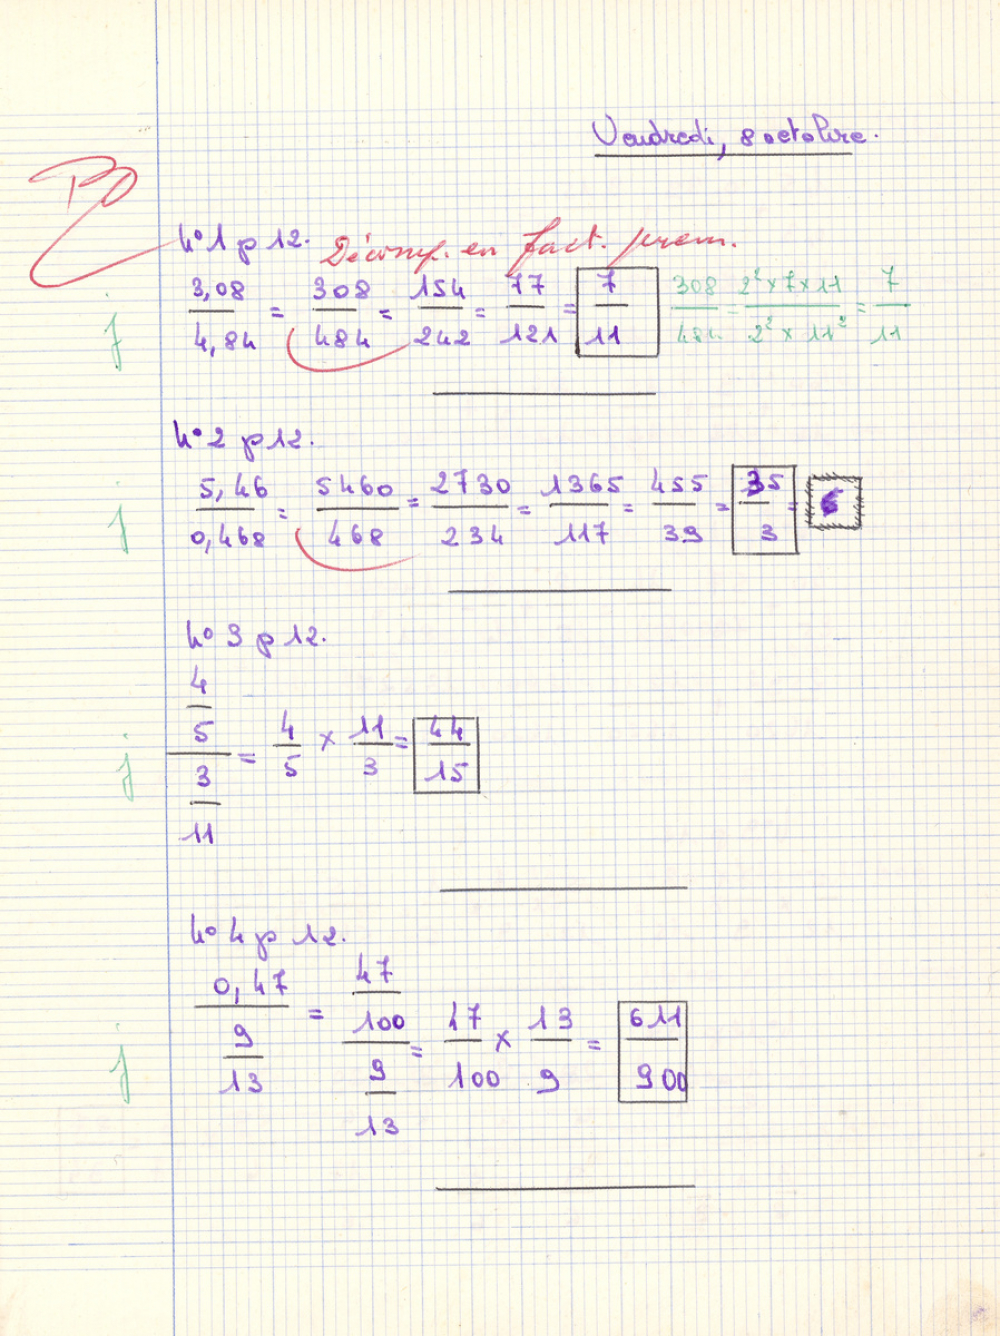 Vendredi, 8 octobre.
N° 1 p 12. Décomp. en fact. prem.
3,08/4,84 = 308/484 = 154/242 = 77/121 = 7/11 308/484 = 2² x 7 x 11/2² x 11² = 7/11
j
N° 2 p 12.
5,46/0,468 = 5460/468 = 2730/234 = 1365/117 = 455/39 = 35/3 =
j
N° 3 p 12.
4/5 / 3/11 = 4/5 x 11/3 = 44/15
j
N° 4 p 12.
0,47 / 9/13 = 47/100 / 9/13 = 47/100 x 13/9 = 611/900
j